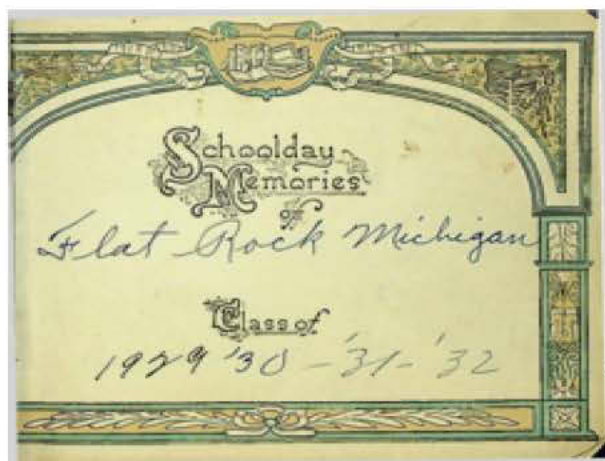 Schoolday
Memories
of
Flat Rock Michigan
Class of
1929 '30 - '31 - '32